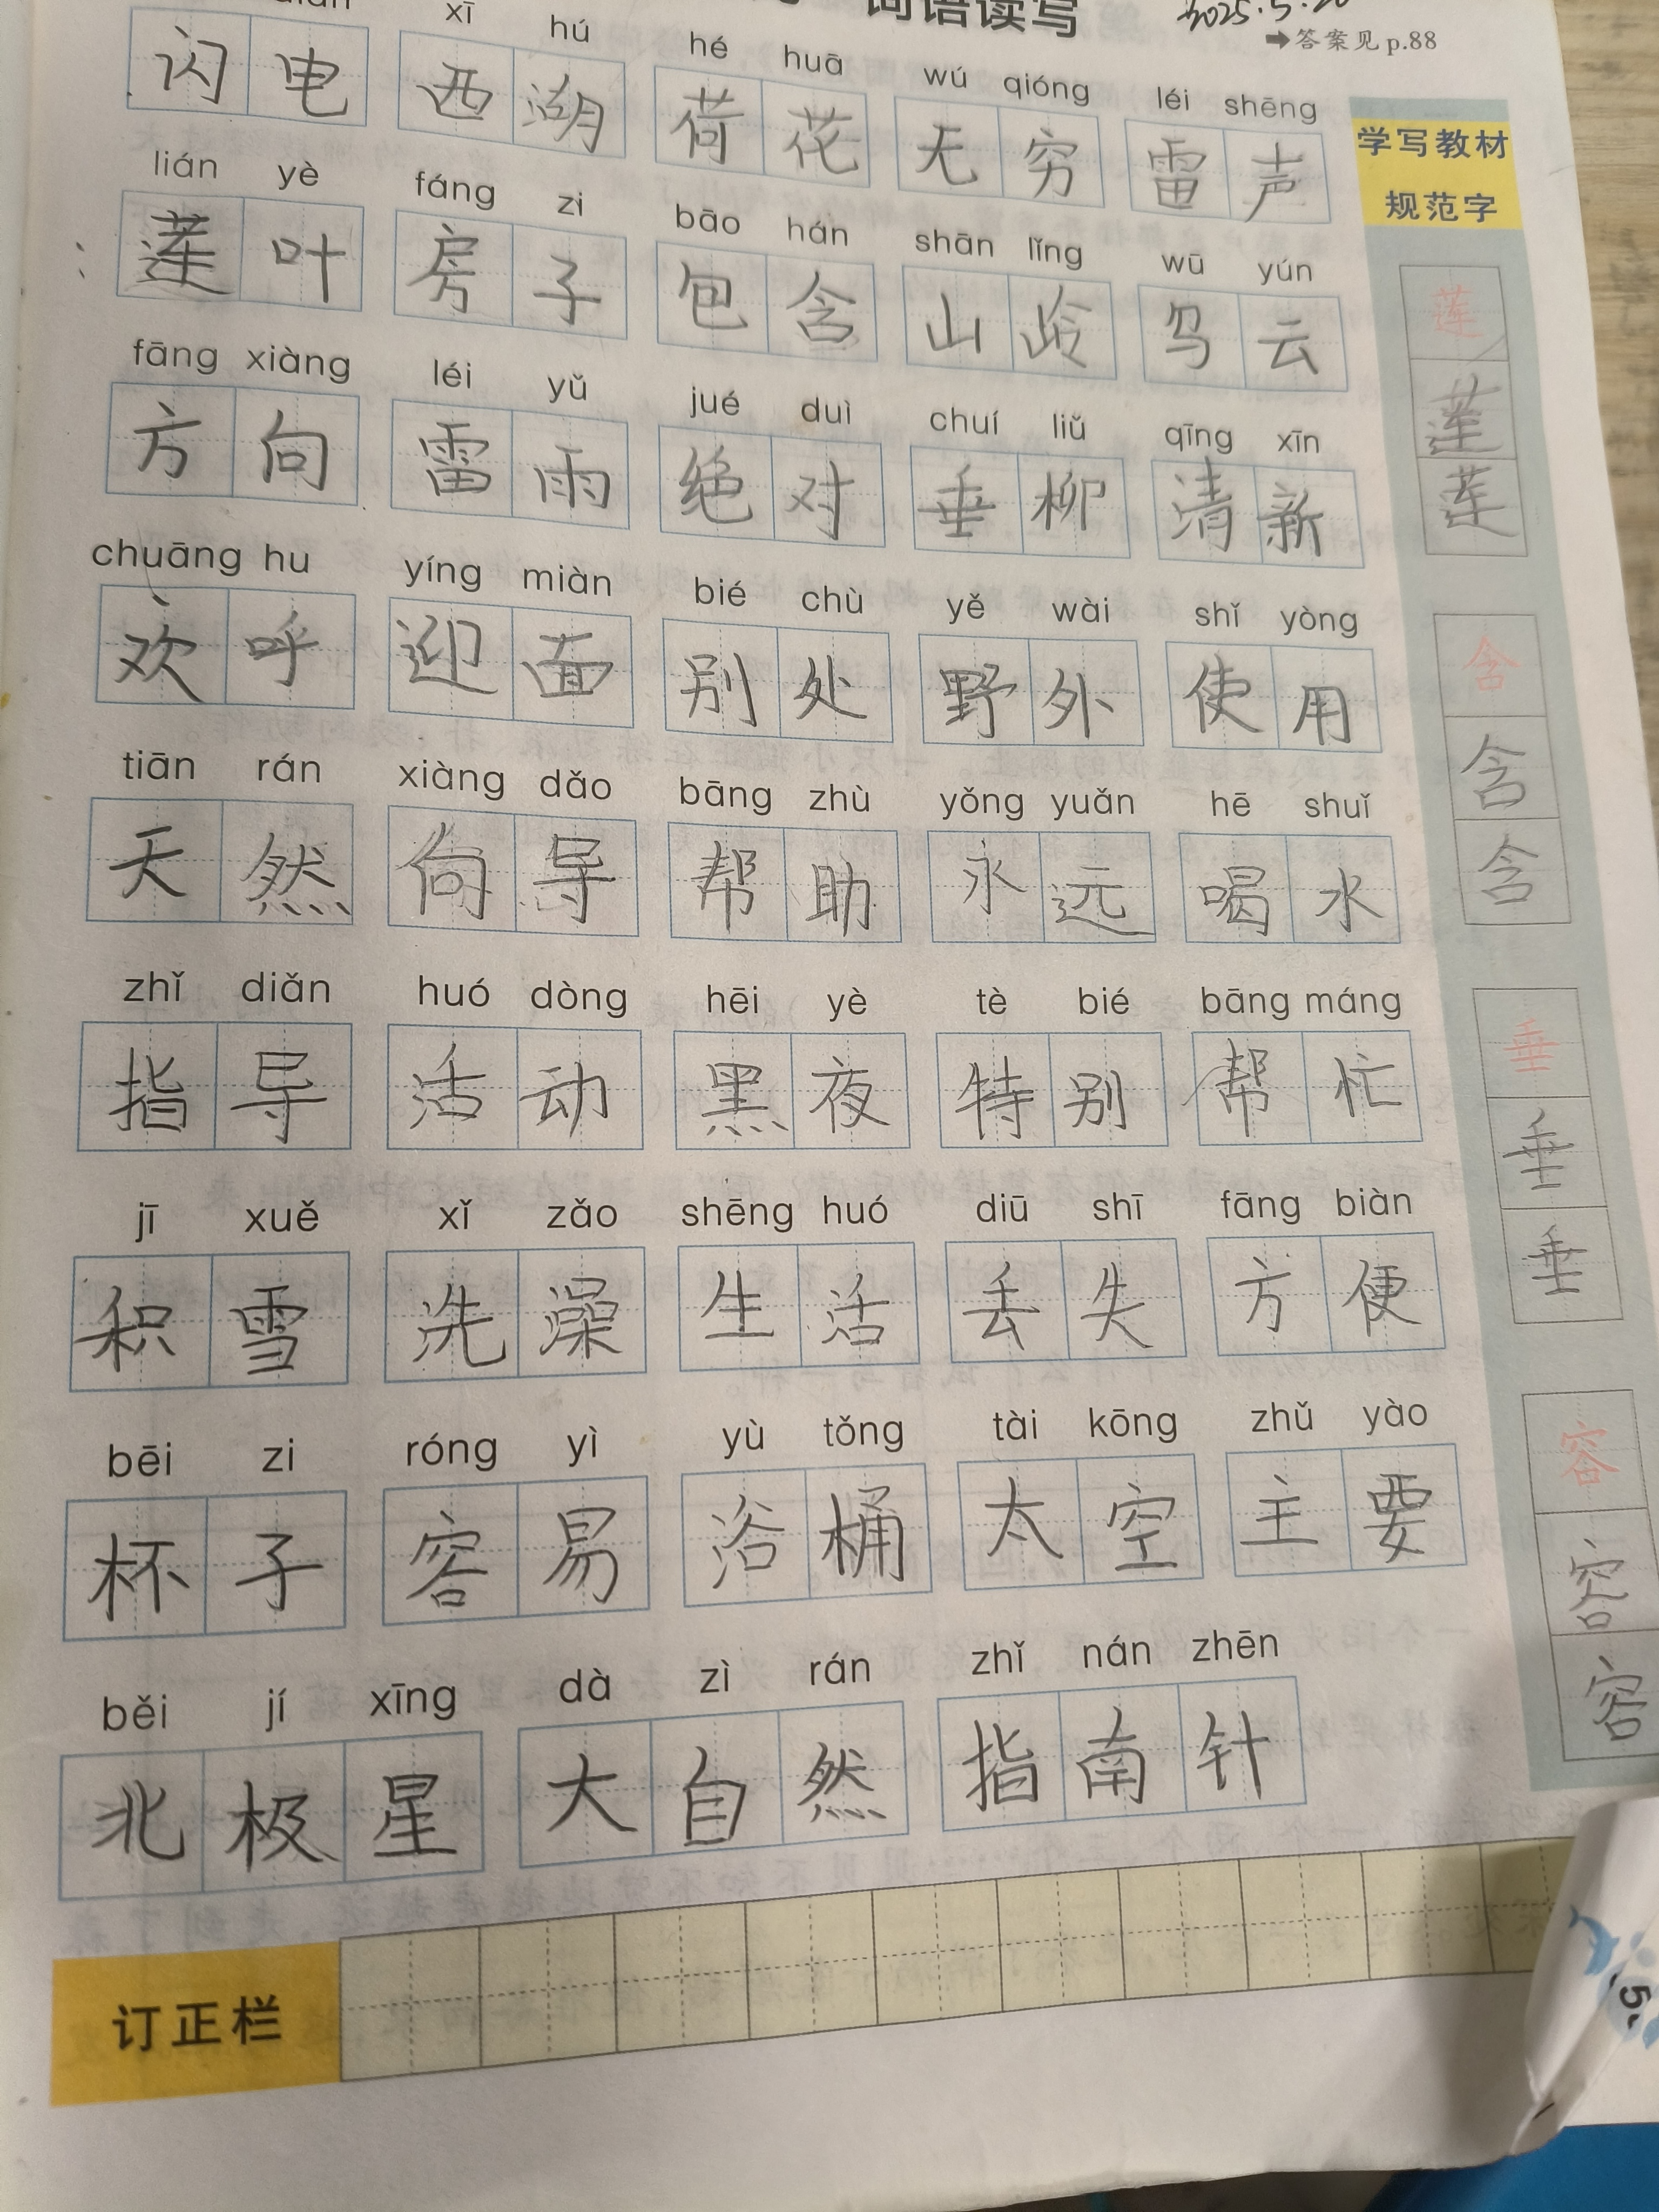 词语读写
2025.5.20
➡答案见 p.88
xī hú hé huā wú qióng léi shēng
闪电 西湖 荷花 无穷 雷声
学写教材
规范字
lián yè fáng zi bāo hán shān lǐng wū yún
莲叶 房子 包含 山岭 乌云
莲
莲
莲
fāng xiàng léi yǔ jué duì chuí liǔ qīng xīn
方向 雷雨 绝对 垂柳 清新
chuāng hu yíng miàn bié chù yě wài shǐ yòng
欢呼 迎面 别处 野外 使用
含
含
含
tiān rán xiàng dǎo bāng zhù yǒng yuǎn hē shuǐ
天然 向导 帮助 永远 喝水
zhǐ diǎn huó dòng hēi yè tè bié bāng máng
指导 活动 黑夜 特别 帮忙
垂
垂
垂
jī xuě xǐ zǎo shēng huó diū shī fāng biàn
积雪 洗澡 生活 丢失 方便
bēi zi róng yì yù tǒng tài kōng zhǔ yào
杯子 容易 浴桶 太空 主要
容
容
容
běi jí xīng dà zì rán zhǐ nán zhēn
北极星 大自然 指南针
订正栏